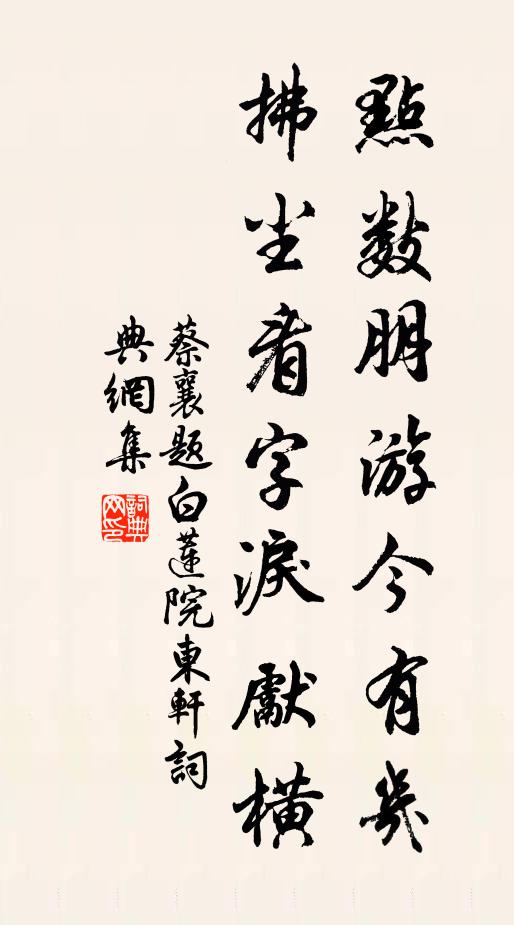 點數朋游今有幾
拂尘看字淚獻橫
蔡襄題白蓮院東軒詞
典網集
詞典网印